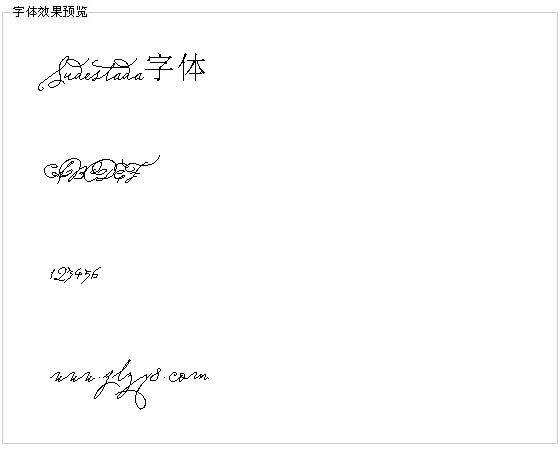 字体效果预览
Sudestada字体
ABCDEF
123456
www.zlzys.com